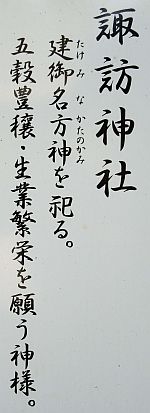 諏訪神社
建御名方神を祀る。
たけみなかたのかみ
五穀豊穣・生業繁栄を願う神様。